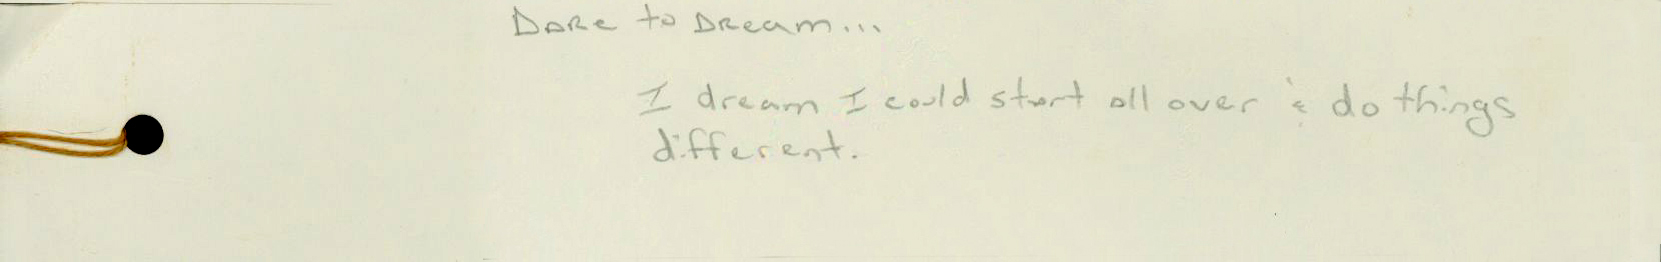 Dare to Dream...
I dream I could start all over & do things
different.